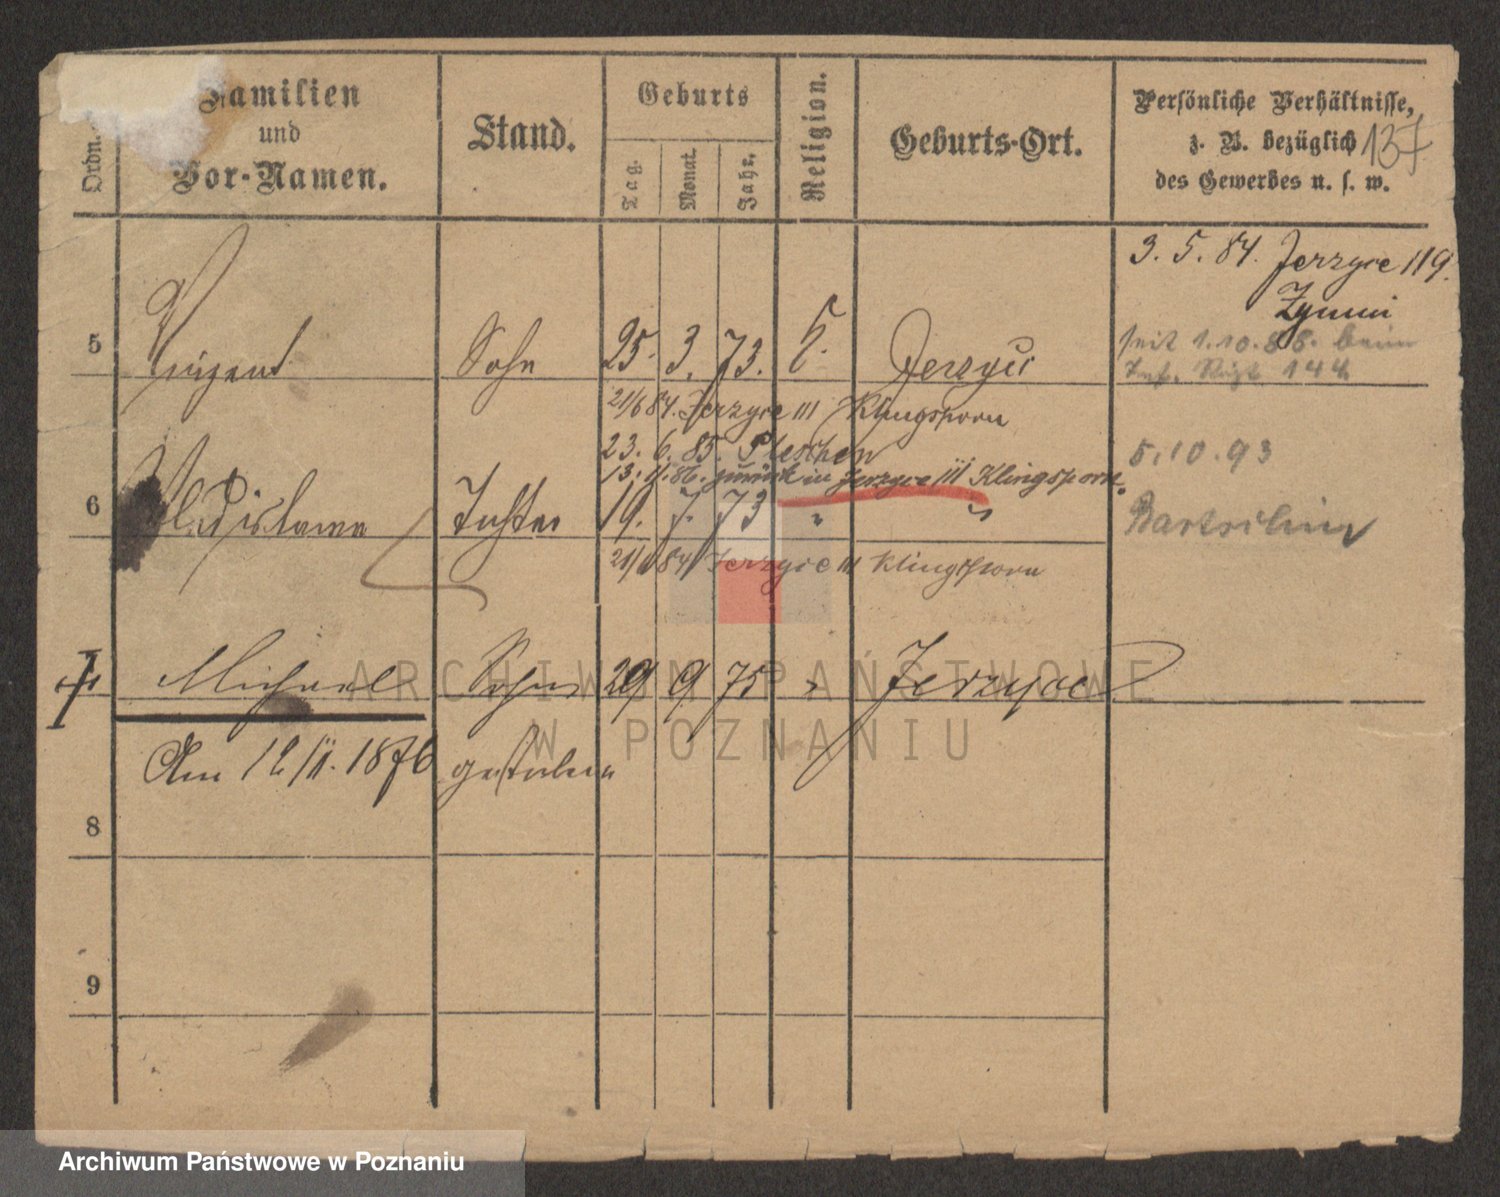 Ordn.
Familien
und
Vor-Namen.
Stand.
Geburts
Tag.
Monat.
Jahr.
Religion.
Geburts-Ort.
Persönliche Verhältnisse,
z. B. bezüglich
des Gewerbes u. s. w.
137
3. 5. 84. Jerzyce 119.
5 Vinzent Sohn 25. 3. 73. Jerzyce
seit 1.10.88. beim
Inf. Rgt 144
21/6 84. Jerzyce III Klingsporn
23. 6. 85. Pleschen
13. 11. 86. zurück in Jerzyce III Klingsporn.
5.10.93
6 Wladislawa Tochter 19. 7. 73 " "
21/6 84 Jerzyce III Klingsporn
Michael Sohn 29 9 75 " Jerzyce
Am 12/II. 1876 gestorben
8
9
ARCHIWUM PAŃSTWOWE
W POZNANIU
Archiwum Państwowe w Poznaniu